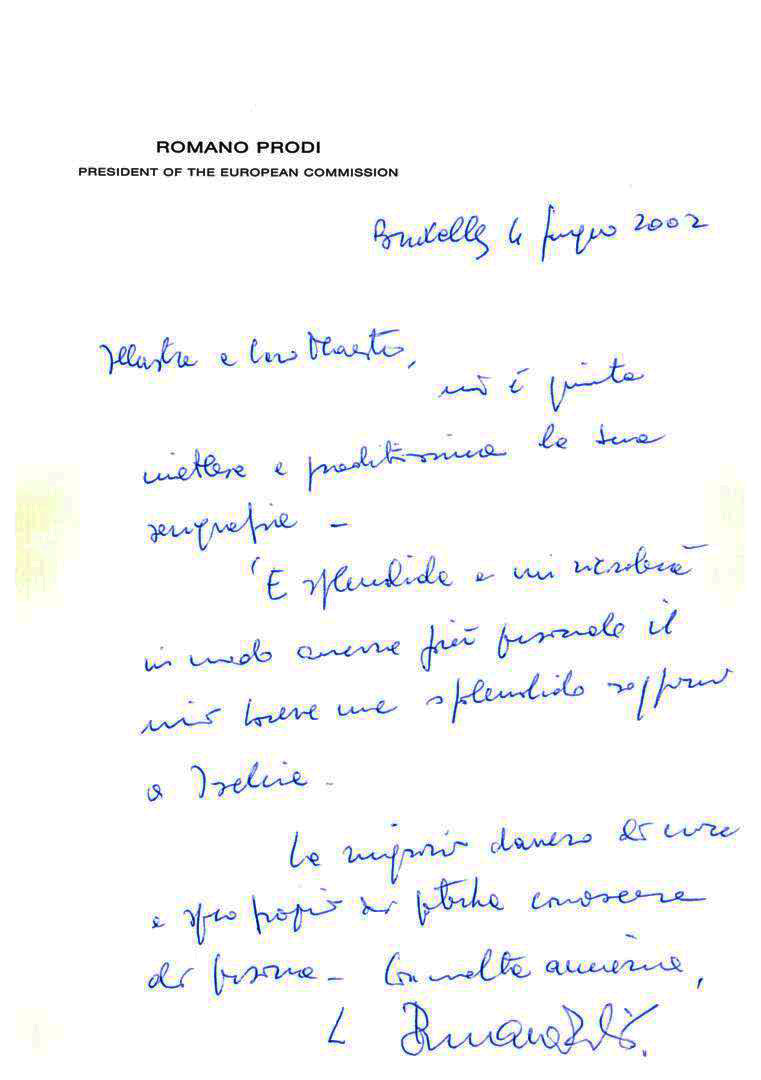 ROMANO PRODI
PRESIDENT OF THE EUROPEAN COMMISSION
Bruxelles 4 giugno 2002
Illustre e Caro Maestro,
mi è giunta
inattesa e graditissima la sua
serigrafia –
È splendida e mi ricorderà
in modo ancora più personale il
mio breve ma splendido soggiorno
a Ischia –
La ringrazio davvero di cuore
e spero proprio di poterla conoscere
di persona – Con molta amicizia,
Romano Prodi